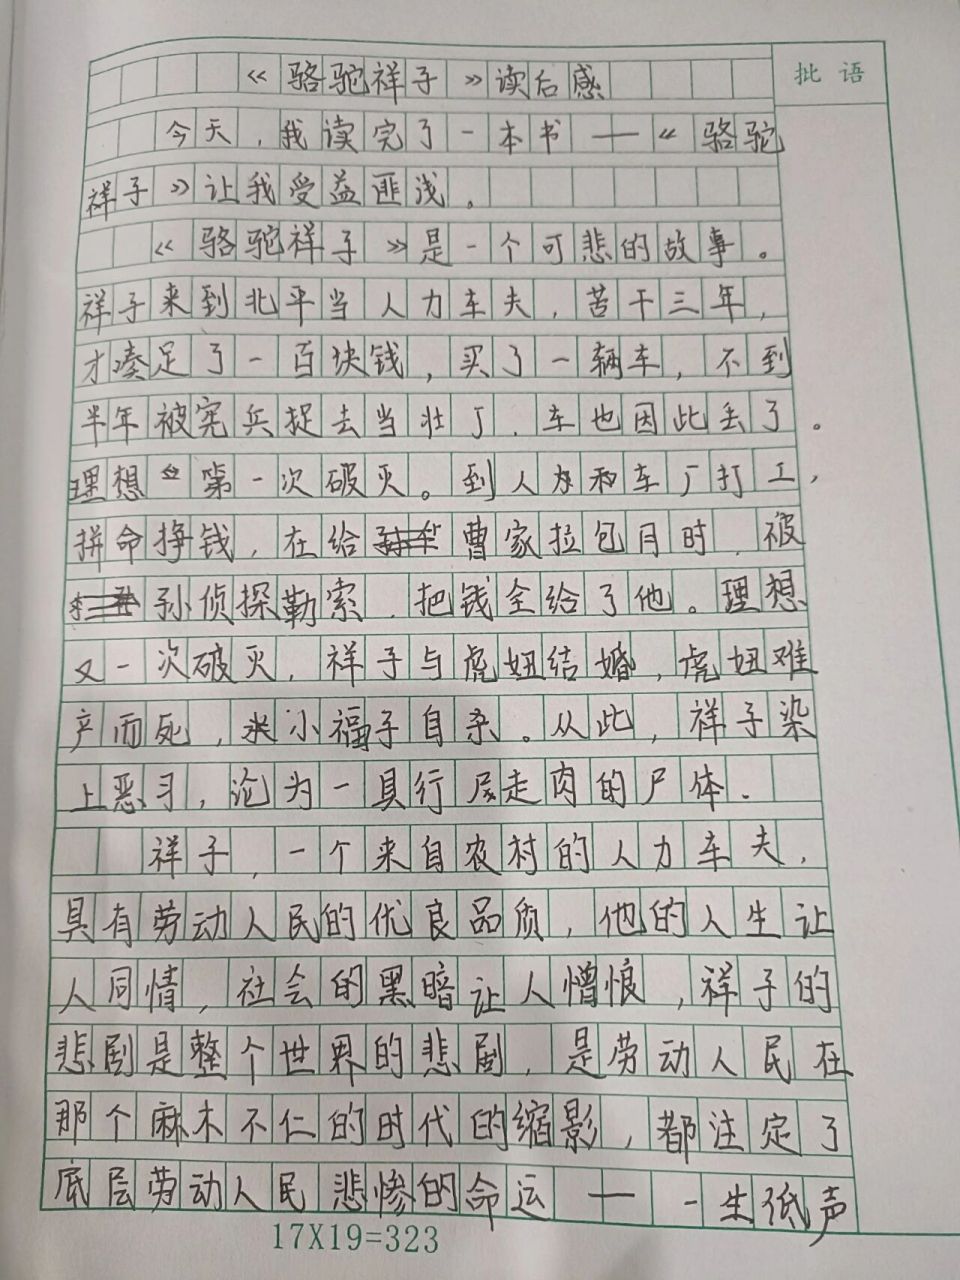 《骆驼祥子》读后感
批语
今天，我读完了一本书——《骆驼
祥子》让我受益匪浅。
《骆驼祥子》是一个可悲的故事。
祥子来到北平当人力车夫，苦干三年，
才凑足了一百块钱，买了一辆车，不到
半年被宪兵捉去当壮丁，车也因此丢了。
理想 第一次破灭。到人和车厂打工，
拼命挣钱，在给 曹家拉包月时，被
孙侦探勒索，把钱全给了他。理想
又一次破灭，祥子与虎妞结婚，虎妞难
产而死，小福子自杀。从此，祥子染
上恶习，沦为一具行尸走肉的尸体．
祥子，一个来自农村的人力车夫，
具有劳动人民的优良品质，他的人生让
人同情，社会的黑暗让人憎恨，祥子的
悲剧是整个世界的悲剧，是劳动人民在
那个麻木不仁的时代的缩影，都注定了
底层劳动人民悲惨的命运——一生低声
17X19=323